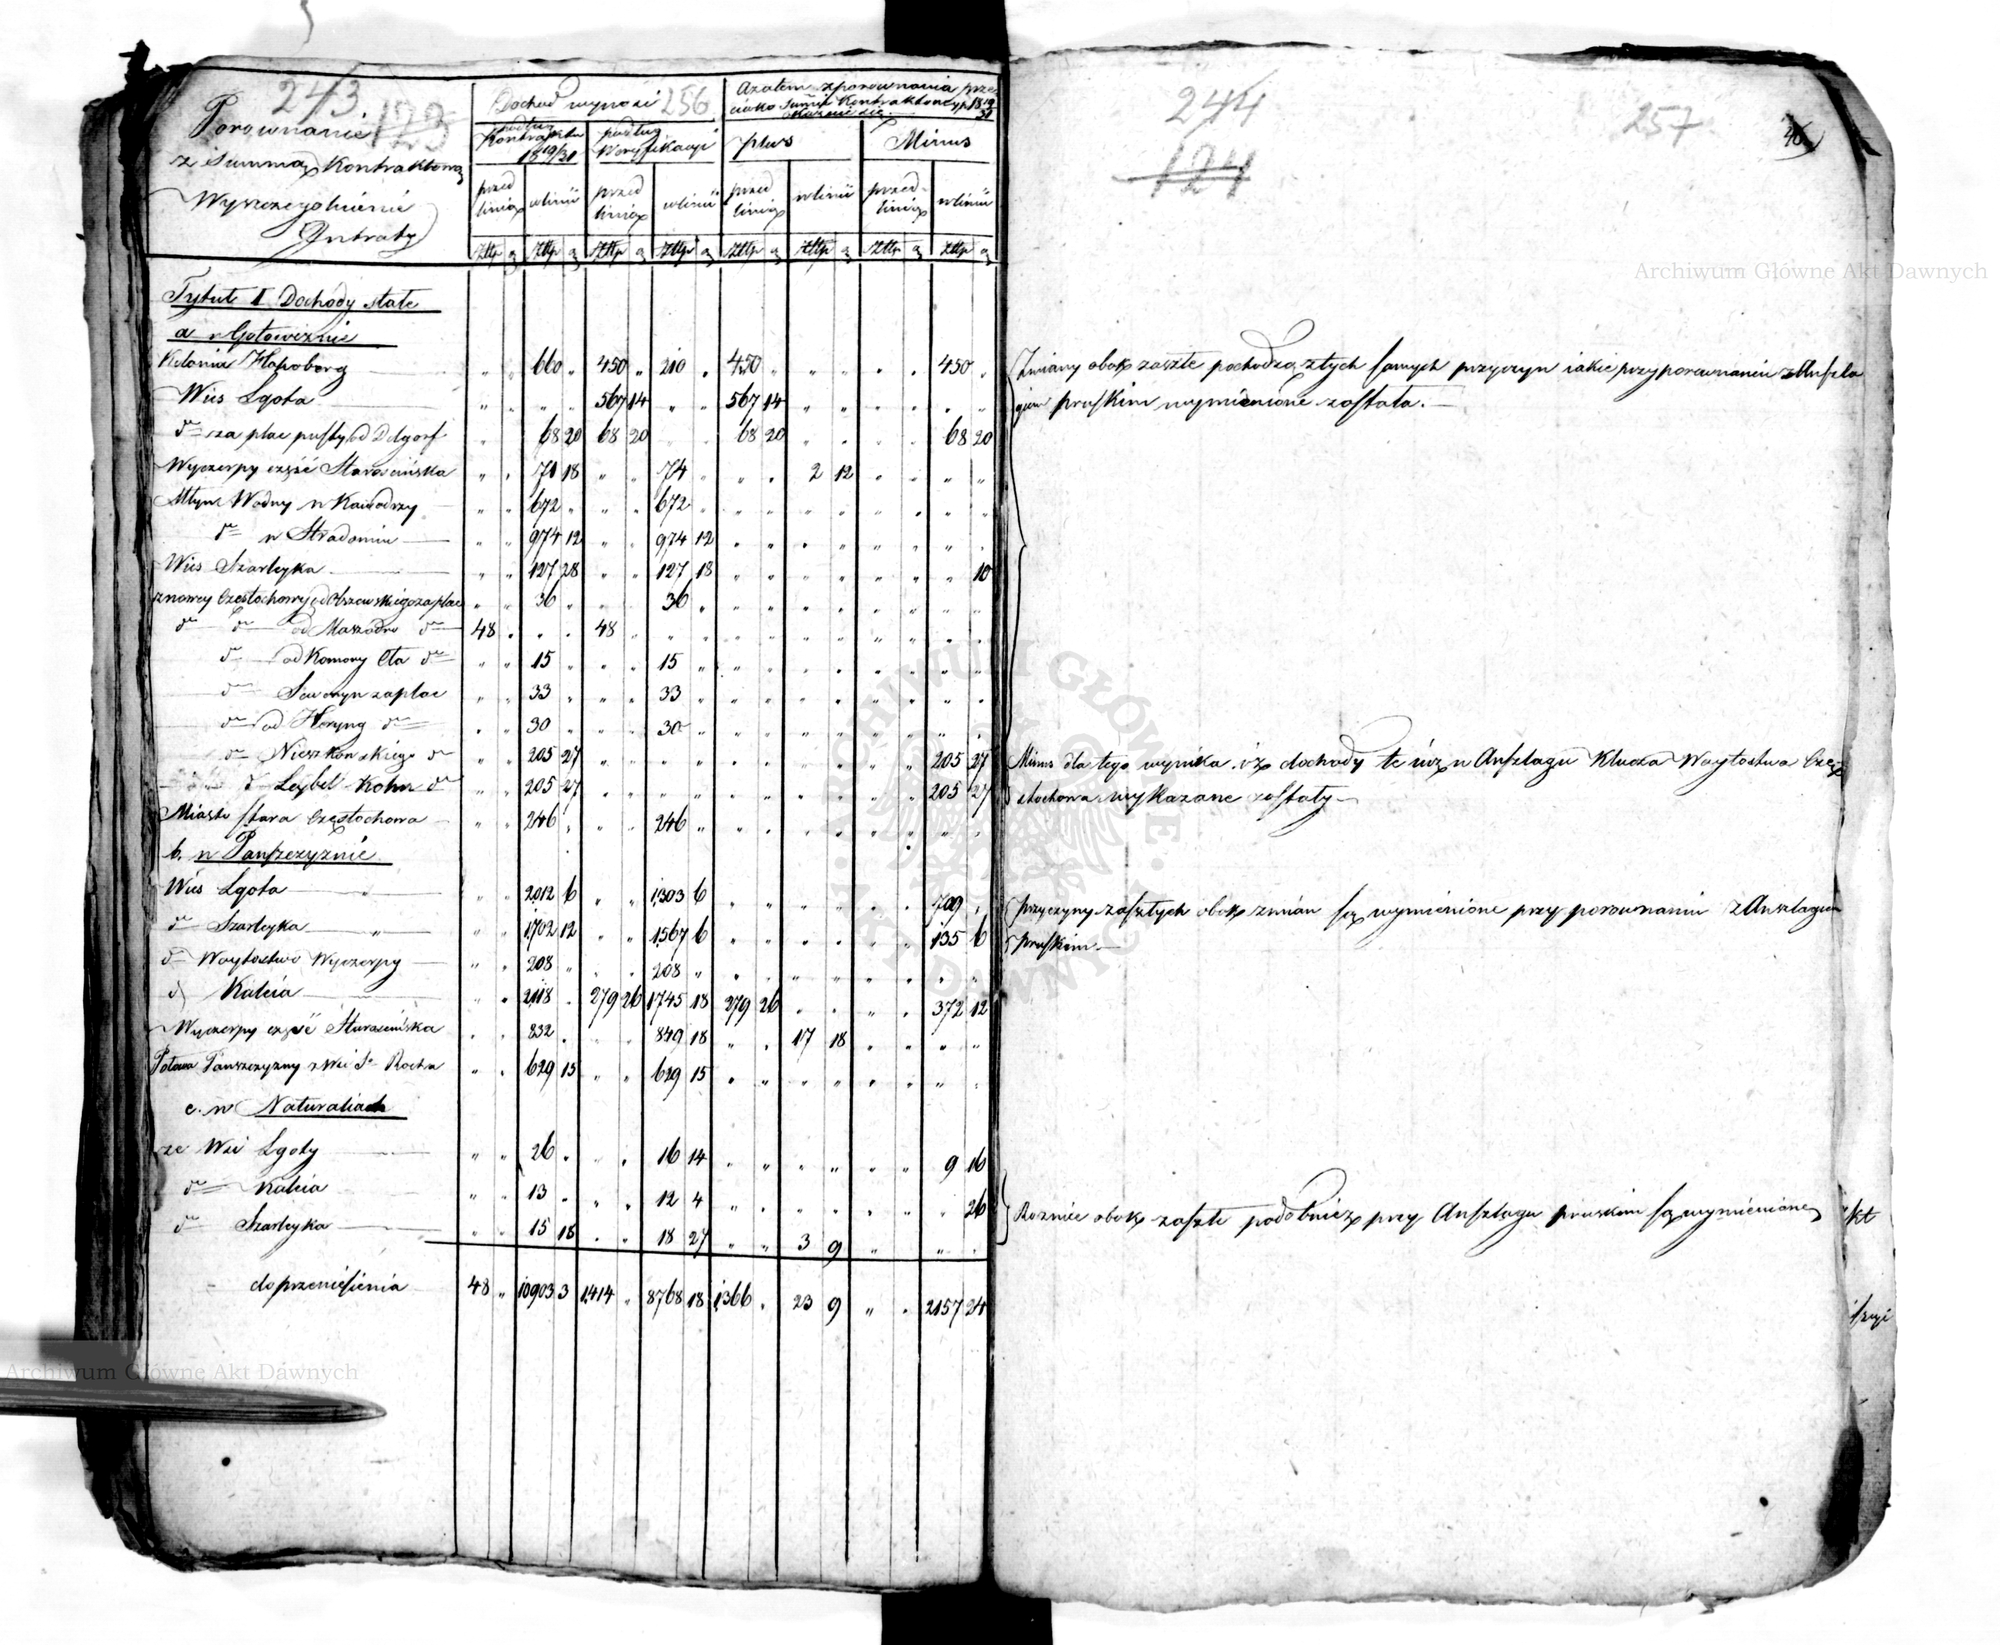 243. 123 256
Porownanie
z Summą Kontraktową
Wyszczególnienie
Intraty
Dochod wynosi
Azatem z porownania prze
ciwko Summie Kontraktowey 1819/31
okazuie się
podług
Kontraktu
1819/31
podług
Weryfikacyi
plus
Minus
przed linią w linii przed linią w linii przed linią w linii przed linią w linii
Złtp g Złtp g Złtp g Złtp g Złtp g Złtp g Złtp g Złtp g
Tytuł I Dochody stałe
a w Gotowiznie
Kolonia 660 " 450 " 210 " 450 " " " " " 450 "
Wieś Lgota " " " " 567 14 " " 567 14 " " " " " "
dto za plac pusty od 68 20 68 20 " " 68 20 " " " " 68 20
Wyczerpy część Starościńska " " 71 18 " " 74 " " " 2 12 " " " "
Młyn Wodny w Kawodrzy " " 672 " " " 672 " " " " " " " " "
dto w Stradomiu " " 974 12 " " 974 12 " " " " " " " "
Wieś Szarleyka " " 127 28 " " 127 18 " " " " " " " 10
z nowey Częstochowy od Olszewskiego za plac " " 36 " " " 36 " " " " " " " " "
dto dto od dto 48 " " " 48 " " " " " " " " " " "
dto od Komory Cła dto " " 15 " " " 15 " " " " " " " " "
dto za plac " " 33 " " " 33 " " " " " " " " "
dto od Heryng dto " " 30 " " " 30 " " " " " " " " "
dto dto " " 205 27 " " " " " " " " " " 205 27
dto Leybel Kohn dto " " 205 27 " " " " " " " " " " 205 27
Miasto stara Częstochowa " " 246 " " " 246 " " " " " " " " "
b. w Panszczyznie
Wieś Lgota " " 2012 6 " " 1303 6 " " " " " " 709 "
dto Szarleyka " " 1702 12 " " 1567 6 " " " " " " 135 6
dto Woytostwo Wyczerpy " " 208 " " " 208 " " " " " " " " "
d Kalcia " " 2118 " 279 26 1745 18 279 26 " " " " 372 12
Wyczerpy część Starościńska " " 832 " " " 849 18 " " 17 18 " " " "
Panszczyzny z Wsi S. Rocha " " 629 15 " " 629 15 " " " " " " " "
c. w Naturaliach
ze Wsi Lgoty " " 26 " " " 16 14 " " " " " " 9 16
dto Kalcia " " 13 " " " 12 4 " " " " " " " 26
dto Szarleyka " " 15 18 " " 18 27 " " 3 9 " " " "
do przeniesienia 48 " 10903 3 1414 " 8768 18 1366 " 23 9 " " 2157 24
244
124
257
Zmiany obok zaszłe pochodzą z tych samych przyczyn iakie przy porownaniu z Anszla
giem pruskim wymienione zostały.
Minus dla tego wynika iż dochody te iuż w Anszlagu Klucza Woytostwa Czę
stochowa wykazane zostały
Przyczyny zaszłych obok zmian są wymienione przy porownaniu z Anszlagiem
pruskim
Roznice obok zaszłe podobnież przy Anszlagu pruskim są wymienione
Archiwum Główne Akt Dawnych
Archiwum Główne Akt Dawnych